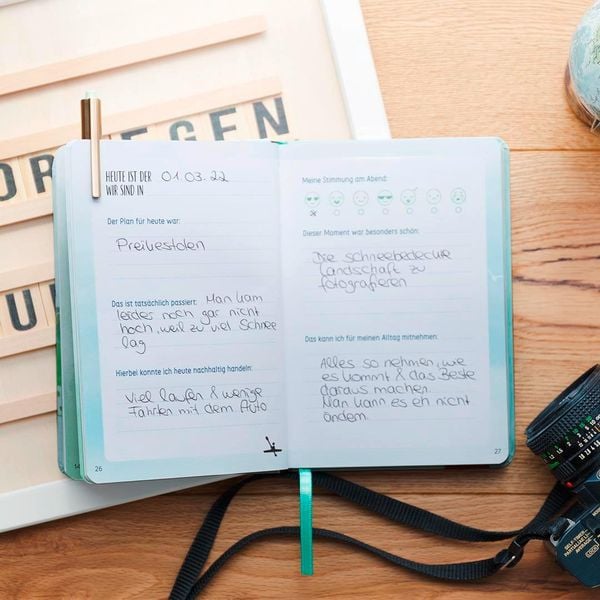 OR
EGEN
U
HEUTE IST DER 01.03.22
WIR SIND IN
Der Plan für heute war:
Preikestolen
Das ist tatsächlich passiert: Man kam
leider noch gar nicht
hoch, weil zu viel Schnee
lag
Hierbei konnte ich heute nachhaltig handeln:
Viel laufen & wenige
Fahrten mit dem Auto
26
Meine Stimmung am Abend:
Dieser Moment war besonders schön:
Die schneebedeckte
Landschaft zu
fotografieren
Das kann ich für meinen Alltag mitnehmen:
Alles so nehmen, wie
es kommt & das Beste
daraus machen.
Man kann es eh nicht
ändern.
27